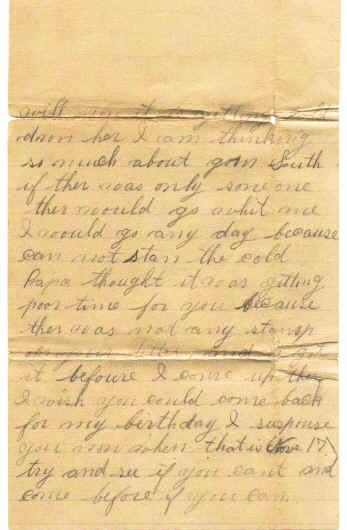 will
down her I am thinking
so much about goin South
if ther was only some one
ther would go whit me
I would go any day because
can not stan the cold
Papa thought it was gitting
poor time for you because
ther was not any stamp
letter and
it befoure I come up ther
I wish you could come back
for my birthday I suspouse
you now when that is 17
try and see if you cant and
come before if you can